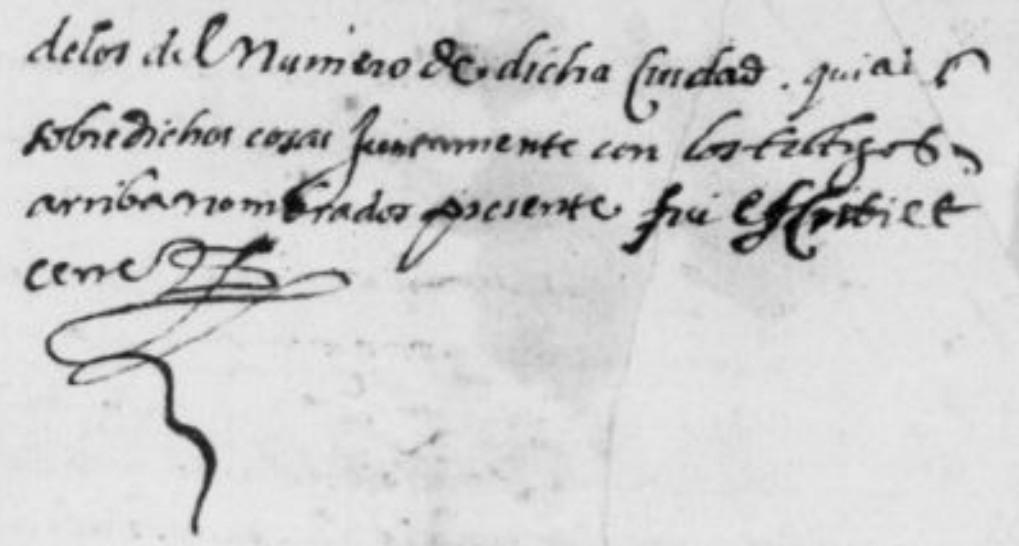 delos del Numero de dicha Ciudad. qui a
sobredichas cosas Juntamente con los testigos
arriba nombrados presente fui escribi et
cerre